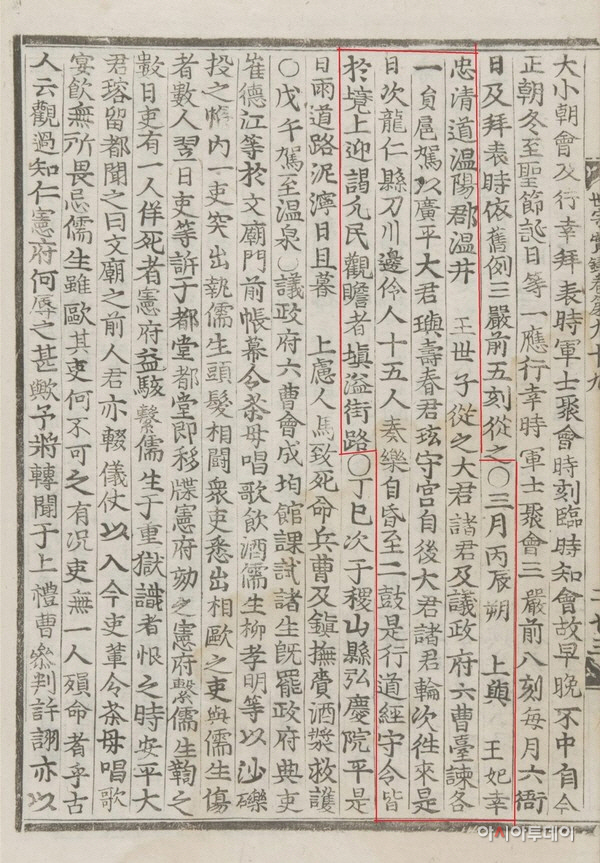 大小朝會及行幸拜表時軍士聚會時刻臨時知會故早晚不中自今
正朝冬至聖節誕日等一應行幸時軍士聚會三嚴前八刻每月六衙
日及拜表時依舊例三嚴前五刻從之〇三月丙辰朔 上與 王妃幸
忠清道温陽郡温井 王世子從之大君諸君及議政府六曹臺諫各
一員扈駕以廣平大君璵壽春君玹守宮自後大君諸君輪次徃來是
日次龍仁縣刀川邊伶人十五人奏樂自昏至二鼓是行道經守令皆
於境上迎謁凡民觀瞻者塡溢街路〇丁巳次于稷山縣弘慶院平是
日雨道路泥濘日且暮 上慮人馬致死命兵曹及鎭撫賫酒漿救護
〇戊午駕至温泉〇議政府六曹會成均館課試諸生旣罷政府典吏
崔德江等於文廟門前帳幕令茶母唱歌飮酒儒生柳孝明等以沙礫
投之帷內一吏突出執儒生頭髮相鬪衆吏悉出相歐之吏與儒生傷
者數人翌日吏等訴于都堂都堂即移牒憲府劾之憲府繫儒生鞫之
數日吏有一人佯死者憲府益駭繫儒生于重獄識者恨之時安平大
君瑢留都聞之曰文廟之前人君亦輟儀仗以入今吏輩令茶母唱歌
宴飮無所畏忌儒生雖歐其吏何不可之有况吏無一人殞命者乎古
人云觀過知仁憲府何辱之甚歟予將轉聞于上禮曹參判許詡亦以
아시아투데이